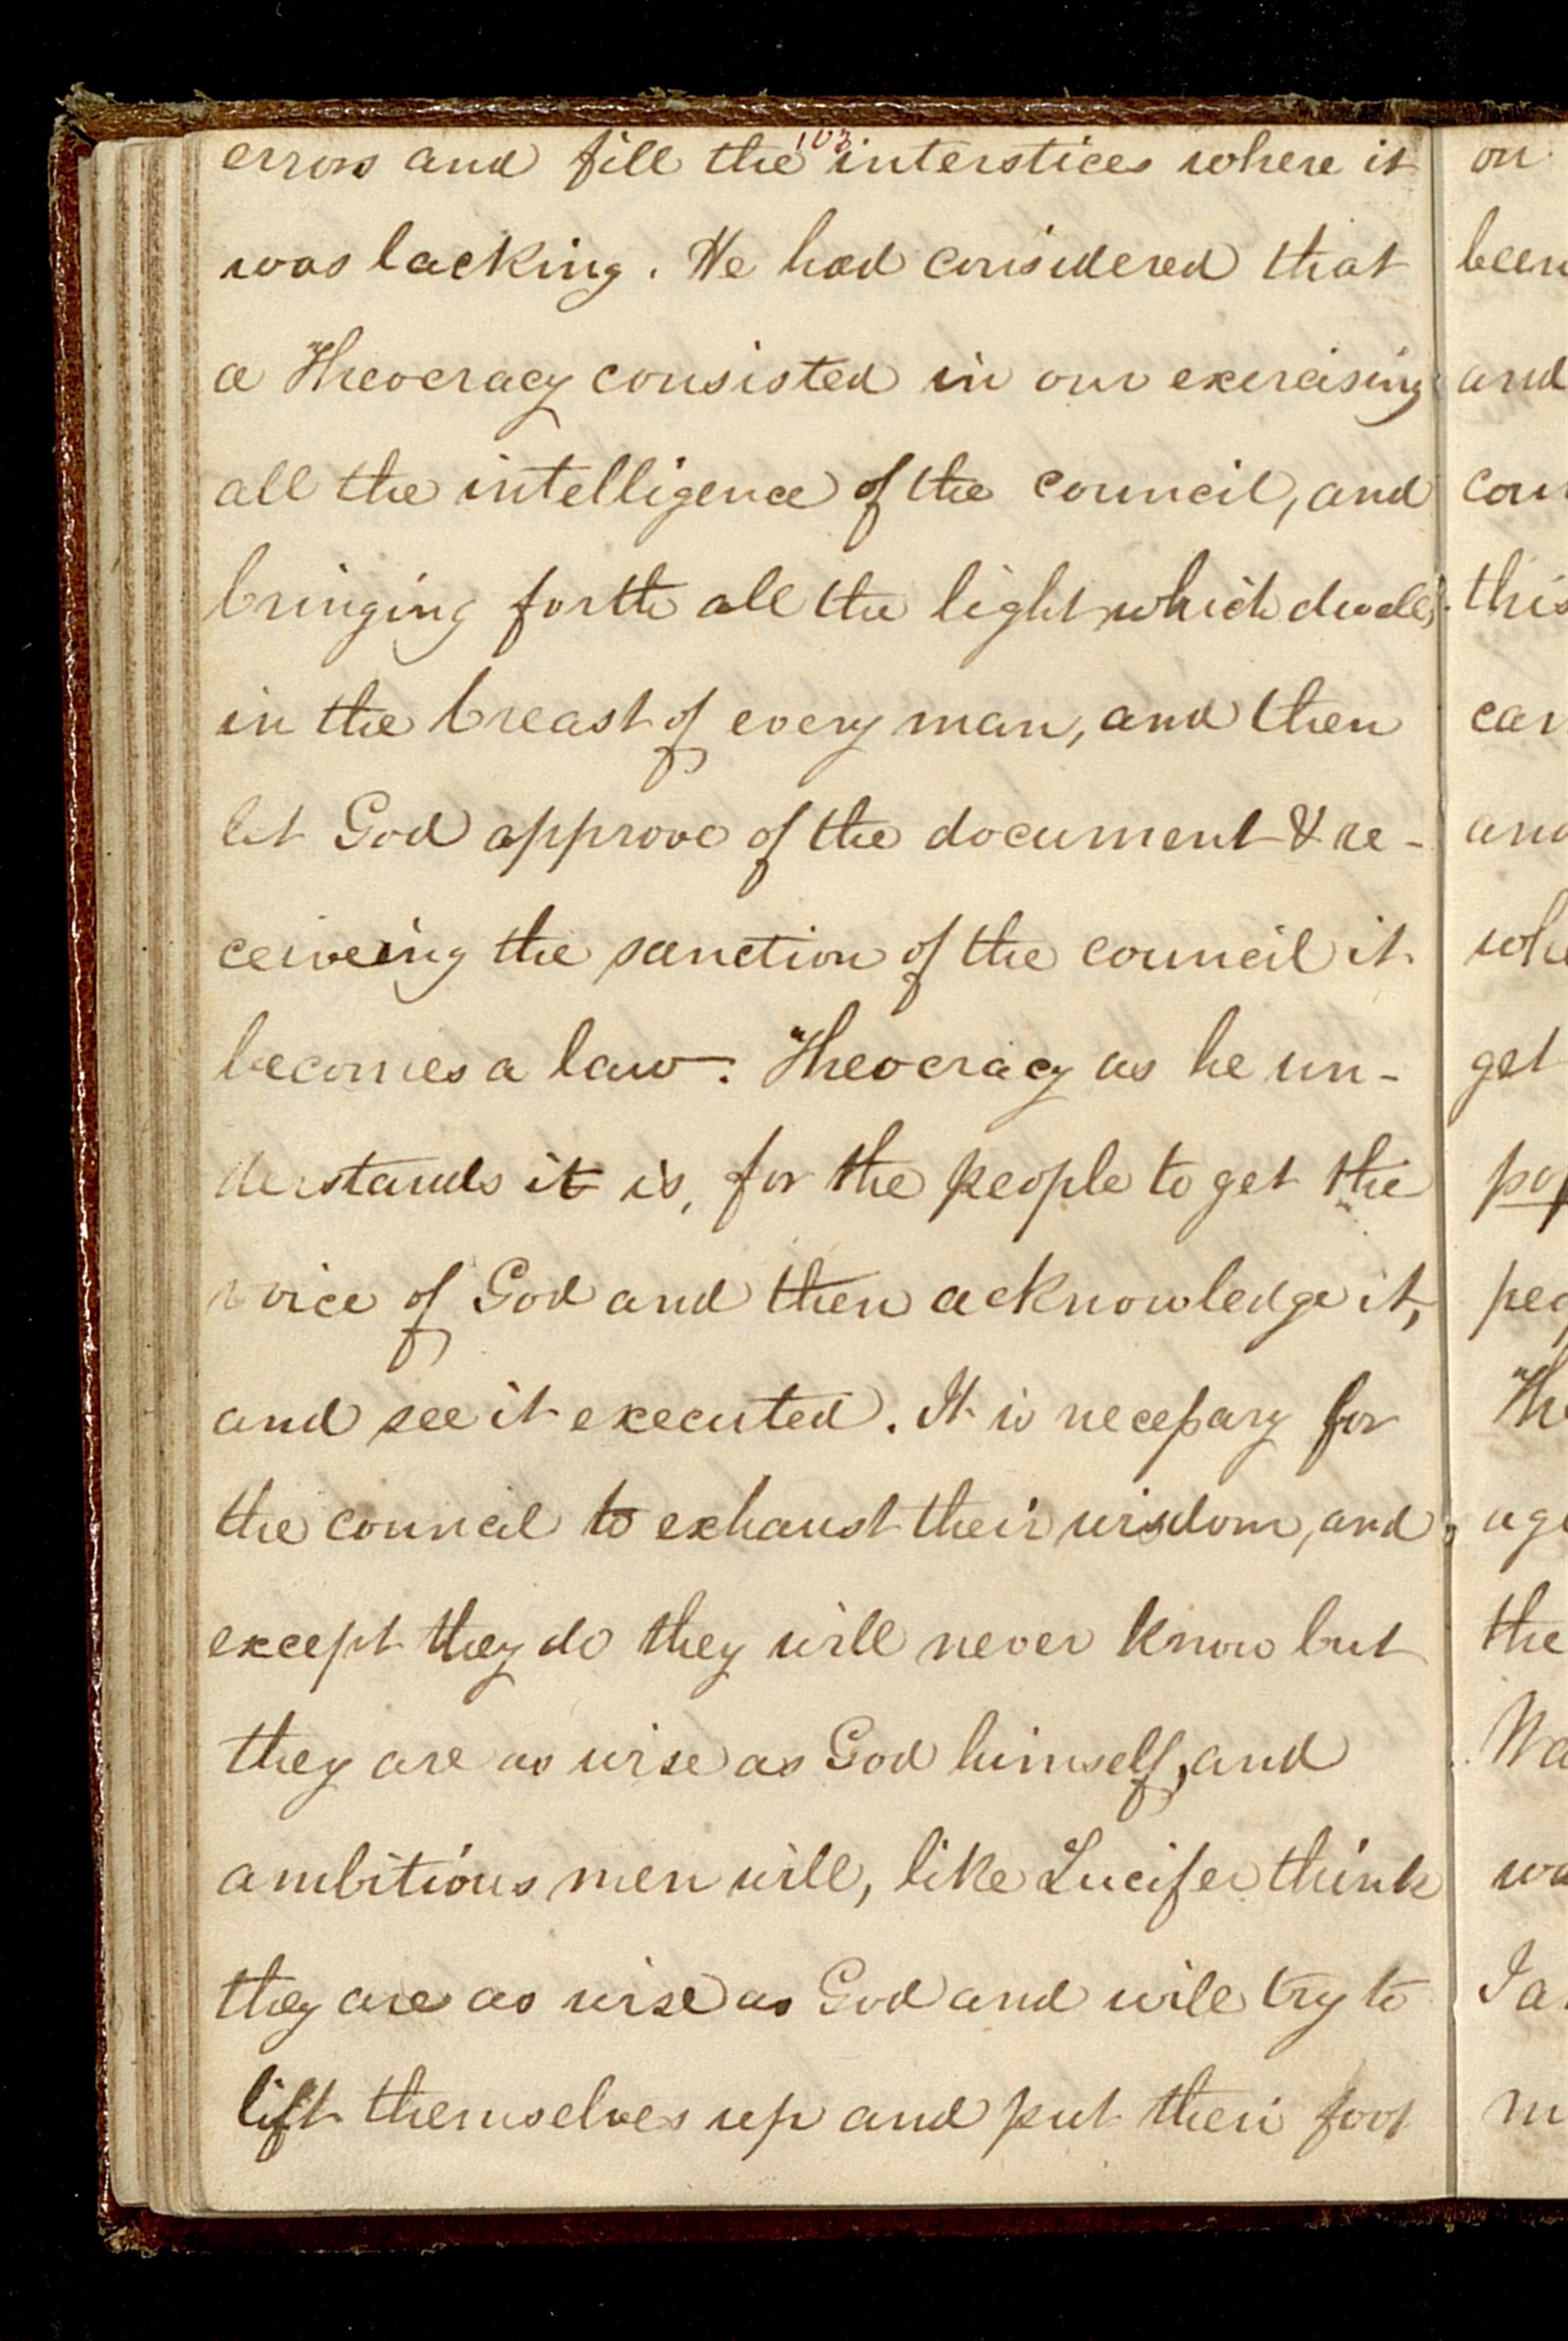 103
errors and fill the interstices where it
was lacking. He had considered that
a Theocracy consisted in our exercising
all the intelligence of the council, and
bringing forth all the light which dwells
in the breast of every man, and then
let God approve of the document & re-
ceiveing the sanction of the council it
becomes a law. Theocracy as he un-
derstands it is, for the people to get the
voice of God and then acknowledge it,
and see it executed. It is necessary for
the council to exhaust their wisdom, and
except they do they will never know but
they are as wise as God himself, and
ambitious men will, like Lucifer think
they are as wise as God and will try to
lift themselves up and put their foot
on
been
and
this
get
the